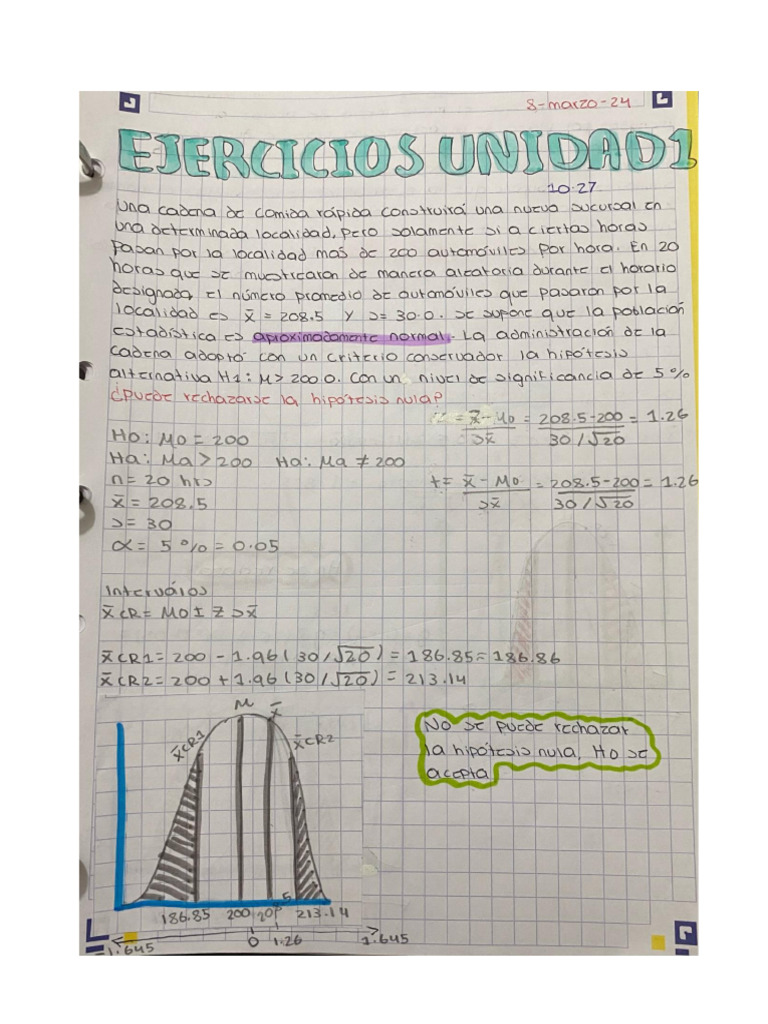 8-marzo-24
EJERCICIOS UNIDAD 1
10.27
Una cadena de comida rápida construirá una nueva sucursal en
una determinada localidad, pero solamente si a ciertas horas
pasan por la localidad más de 200 automóviles por hora. En 20
horas que se muestrearon de manera aleatoria durante el horario
designada, el número promedio de automóviles que pasaron por la
localidad es x̄ = 208.5 y s= 30.0. se supone que la población
estadística es aproximadamente normal. La administración de la
cadena adoptó con un criterio conservador la hipótesis
alternativa H1: M > 200.0. Con un nivel de significancia de 5%
¿Puede rechazarse la hipótesis nula?
x̄ - Mo / sx̄ = 208.5-200 / 30/√20 = 1.26
Ho: Mo = 200
Ha: Ma > 200 Ha: Ma ≠ 200
n= 20 hrs
t= x̄ - Mo / sx̄ = 208.5-200 / 30/√20 = 1.26
x̄ = 208.5
s= 30
α= 5% = 0.05
Intervalos
x̄CR= Mo ± Z sx̄
x̄CR1= 200 - 1.96 (30/√20) = 186.85= 186.86
x̄CR2= 200 + 1.96 (30/√20) = 213.14
M x̄
x̄CR1 x̄CR2
No se puede rechazar
la hipótesis nula, Ho se
acepta
186.85 200 208.5 213.14
-1.645 0 1.26 1.645